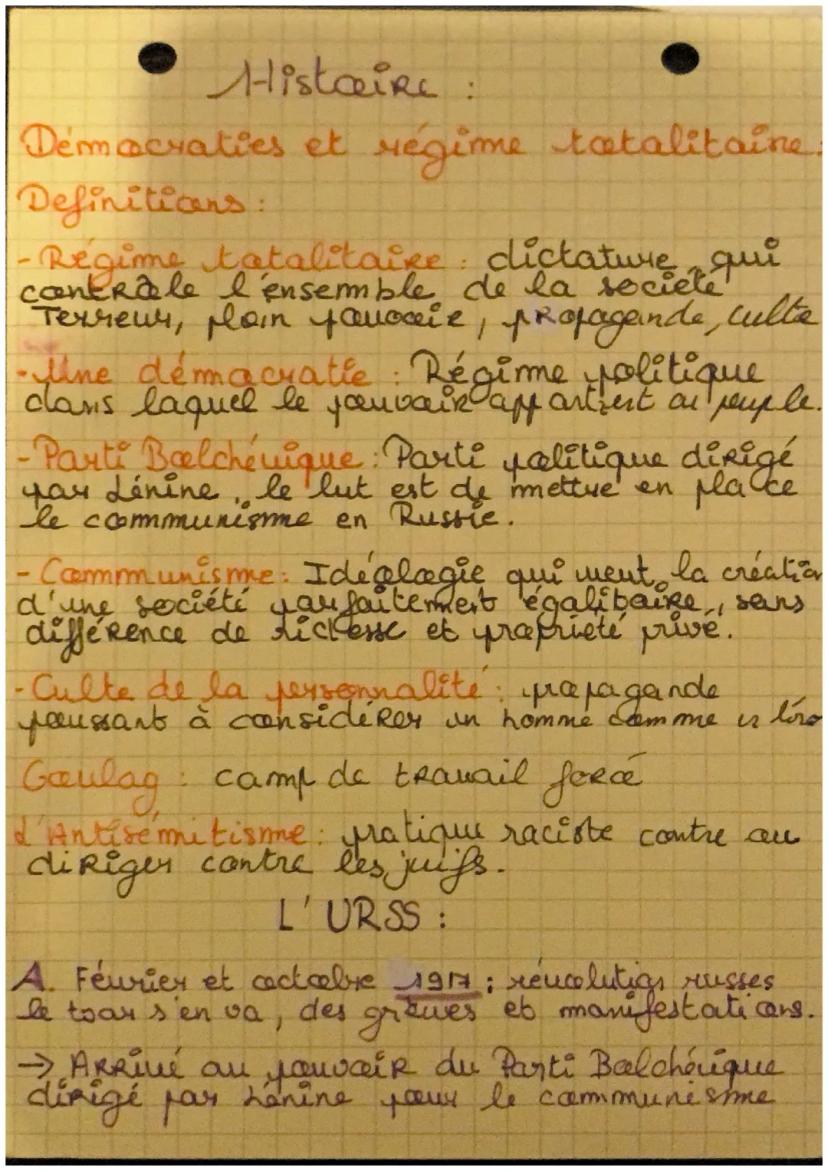 Histoire :
Démocraties et régime totalitaire.
Definitions :
- Régime totalitaire : dictature qui
contrôle l'ensemble de la société
Terreur, plein pouvoir, propagande, culte
- Une démocratie : Régime politique
dans laquel le pouvoir appartient au peuple.
- Parti Bolchévique : Parti politique dirigé
par Lénine, le but est de mettre en place
le communisme en Russie.
- Communisme : Idéologie qui veut la création
d'une société parfaitement égalitaire, sans
différence de richesse et propriété privé.
- Culte de la personnalité : propagande
poussant à considérer un homme comme
Goulag : camp de travail forcé
L'Antisémitisme : pratique raciste contre ou
diriger contre les juifs.
L'URSS :
A. Février et octobre 1917 : révolution russes
le tsar s'en va, des grèves et manifestations.
→ Arrivé au pouvoir du Parti Bolchévique
dirigé par Lénine pour le communisme